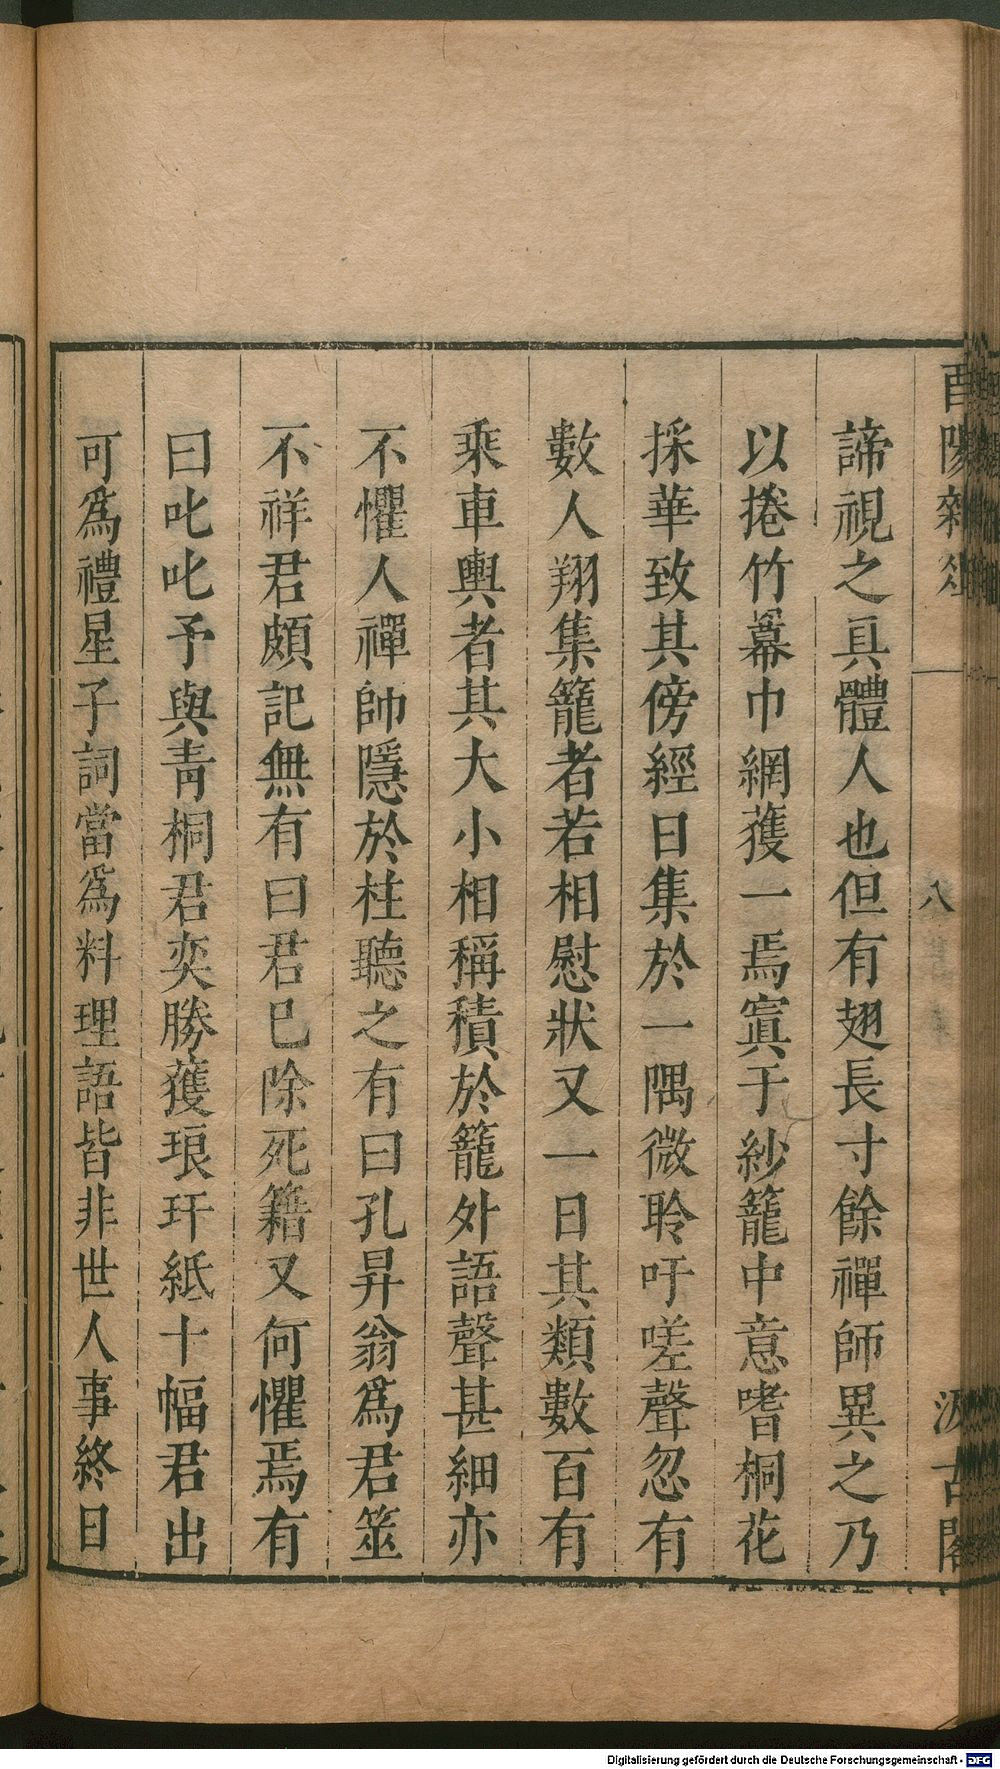 諦視之具體人也但有翅長寸餘禪師異之乃
以捲竹幕巾網獲一焉寘于紗籠中意嗜桐花
採華致其傍經日集於一隅微聆吁嗟聲忽有
數人翔集籠者若相慰狀又一日其類數百有
乘車輿者其大小相稱積於籠外語聲甚細亦
不懼人禪師隱於柱聽之有曰孔昇翁爲君筮
不祥君頗記無有曰君已除死籍又何懼焉有
曰叱叱予與青桐君奕勝獲琅玕紙十幅君出
可爲禮星子詞當爲料理語皆非世人事終日
酉陽雜俎
八
汲古閣
Digitalisierung gefördert durch die Deutsche Forschungsgemeinschaft - DFG